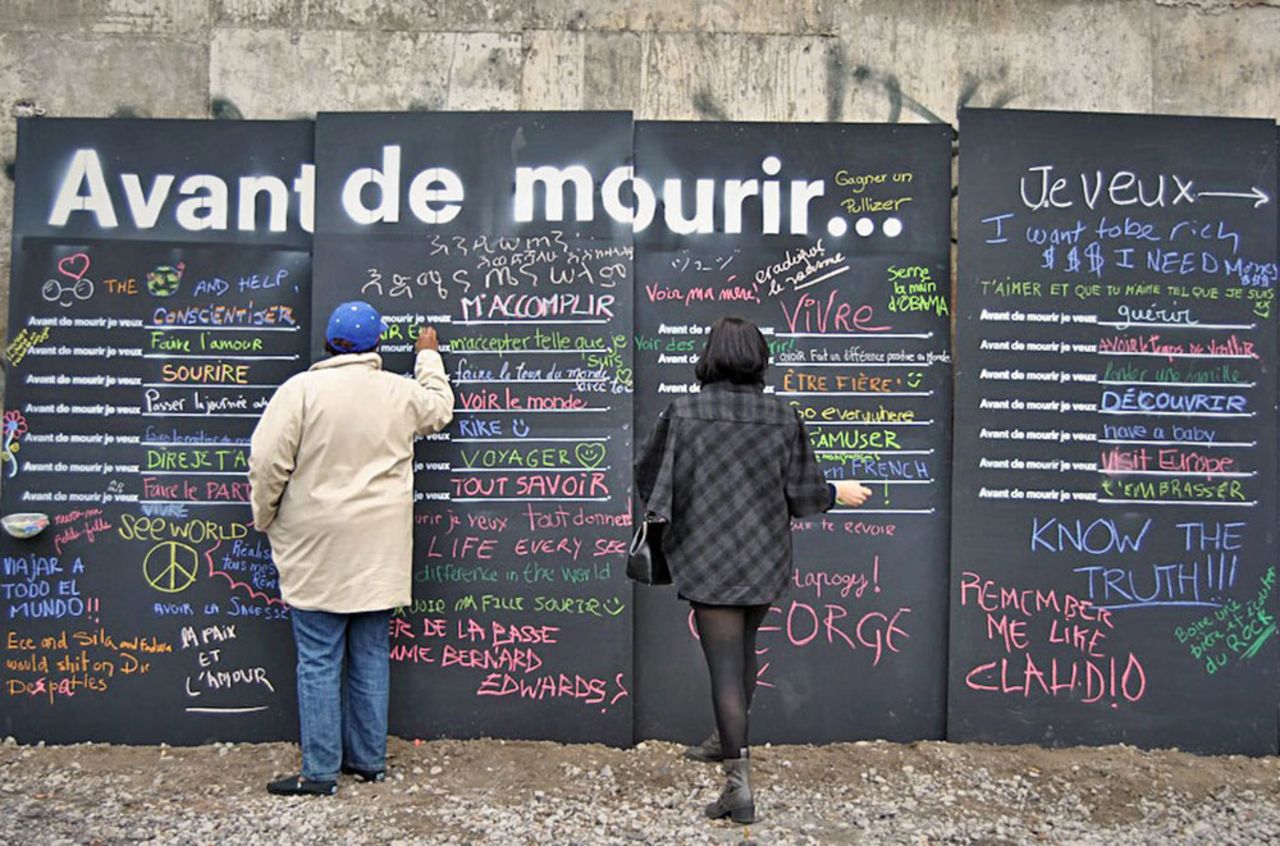 Avant de mourir...
Gagner un
Pullizer
THE AND HELP,
Avant de mourir je veux CONSCIENTISER
Avant de mourir je veux Faire l'amour
Avant de mourir je veux SOURIRE
Avant de mourir je veux Passer la journée
Avant de mourir je veux
Avant de mourir je veux DIRE JE T'A
Avant de mourir je veux Faire le PART
VIVRE
SEE WORLD
Réaliser
tous mes
Rêves
VIAJAR A
TODO EL
MUNDO!!
AVOIR LA SAGESSE
Ece and Sila and
would shit on
LA PAIX
ET
L'AMOUR
mourir je veux M'ACCOMPLIR
m'accepter telle que je
suis
faire le tour du monde
avec toi
je veux Voir le monde
je veux RIKE
je veux VOYAGER
je veux TOUT SAVOIR
je veux tout donner
LIFE EVERY SEC
difference in the world
VOIR MA FILLE SOURIR
DE LA PASSE
BERNARD
EDWARDS
Voir ma mère!
eradiquer
le racisme
Serrer
la main
d'OBAMA
Avant de VIVRE
Voir des
Avant de AVOIR Fait un différence positive au Monde
Avant ÊTRE FIÈRE!
Go everywhere
T'AMUSER
en FRENCH
!
TE REVOIR
GEORGE
Je veux →
I want to be rich
$$$ I NEED Money
$$$
T'AIMER ET QUE TU M'AIME TEL QUE JE SUIS
Avant de mourir je veux guérir
Avant de mourir je veux AVOIR le temps de vieillir
Avant de mourir je veux fonder une famille
Avant de mourir je veux DÉCOUVRIR
Avant de mourir je veux have a baby
Avant de mourir je veux visit Europe
Avant de mourir je veux t'EMBRASSER
KNOW THE
TRUTH!!!
REMEMBER
ME LIKE
CLAUDIO
Boire une
bière et écouter
du ROCK